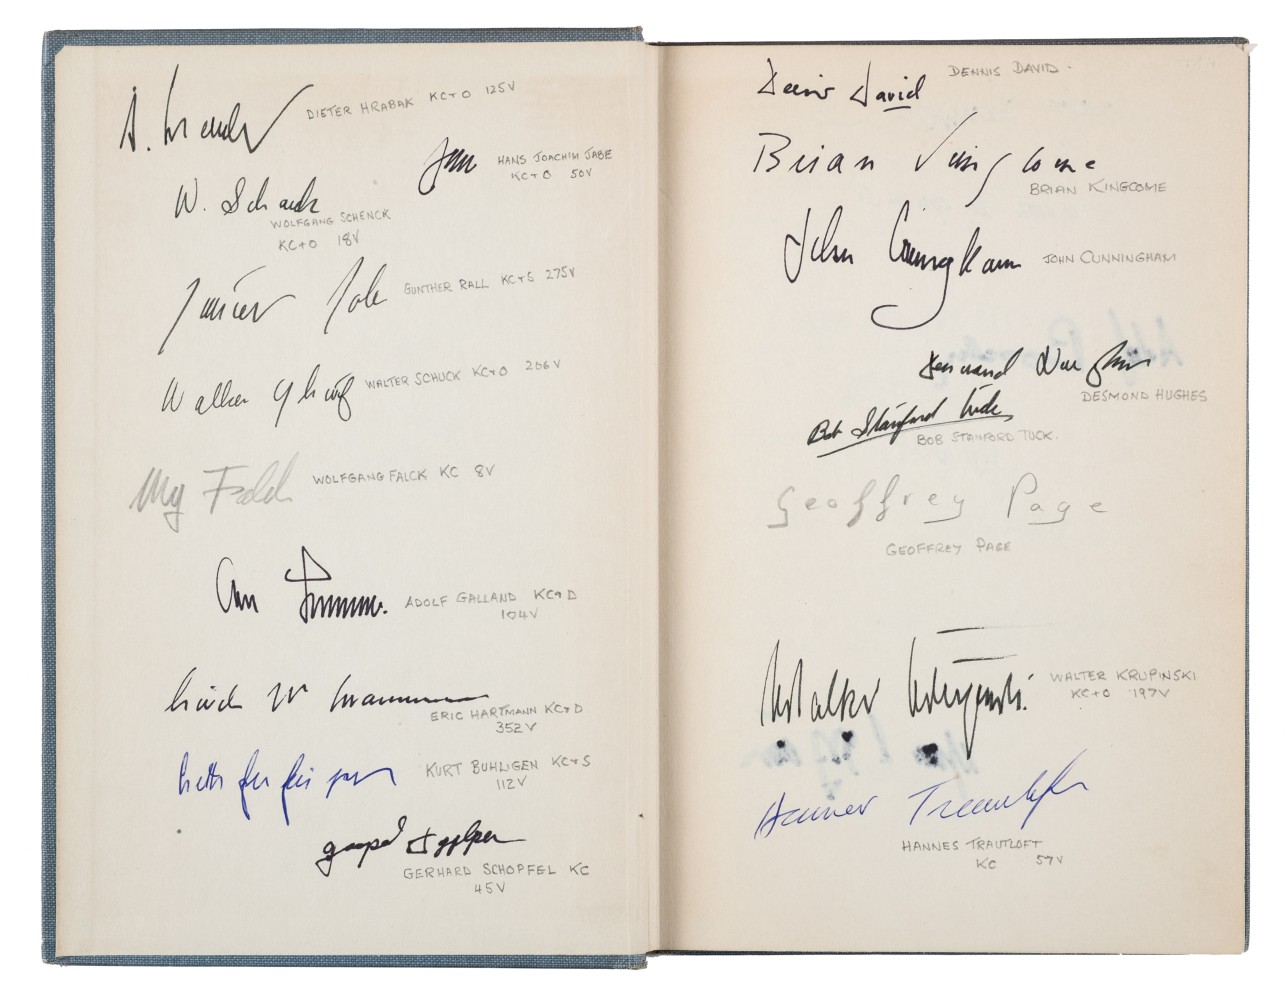 DIETER HRABAK KC+O 125V
HANS JOACHIM JABE
KC+O 50V
W. Schenck
WOLFGANG SCHENCK
KC+O 18V
GUNTHER RALL KC+S 275V
WALTER SCHUCK KC+O 206V
WOLFGANG FALCK KC 8V
ADOLF GALLAND KC+D
104V
ERIC HARTMANN KC+D
352V
KURT BUHLIGEN KC+S
112V
GERHARD SCHOPFEL KC
45V
Dennis David DENNIS DAVID
Brian Kingcome
BRIAN KINGCOME
John Cunningham JOHN CUNNINGHAM
Desmond Hughes
DESMOND HUGHES
Bob Stanford Tuck
BOB STANFORD TUCK.
Geoffrey Page
GEOFFREY PAGE
Walter Krupinski. WALTER KRUPINSKI
KC+O 197V
Hannes Trautloft
HANNES TRAUTLOFT
KC 57V